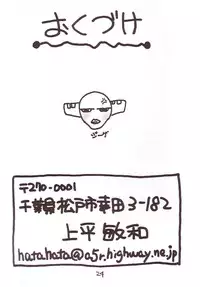 おくづけ
じーざ
〒270-0001
千葉県松戸市幸田3-182
上平 敏和
hatahata@a5r.highway.ne.jp
29